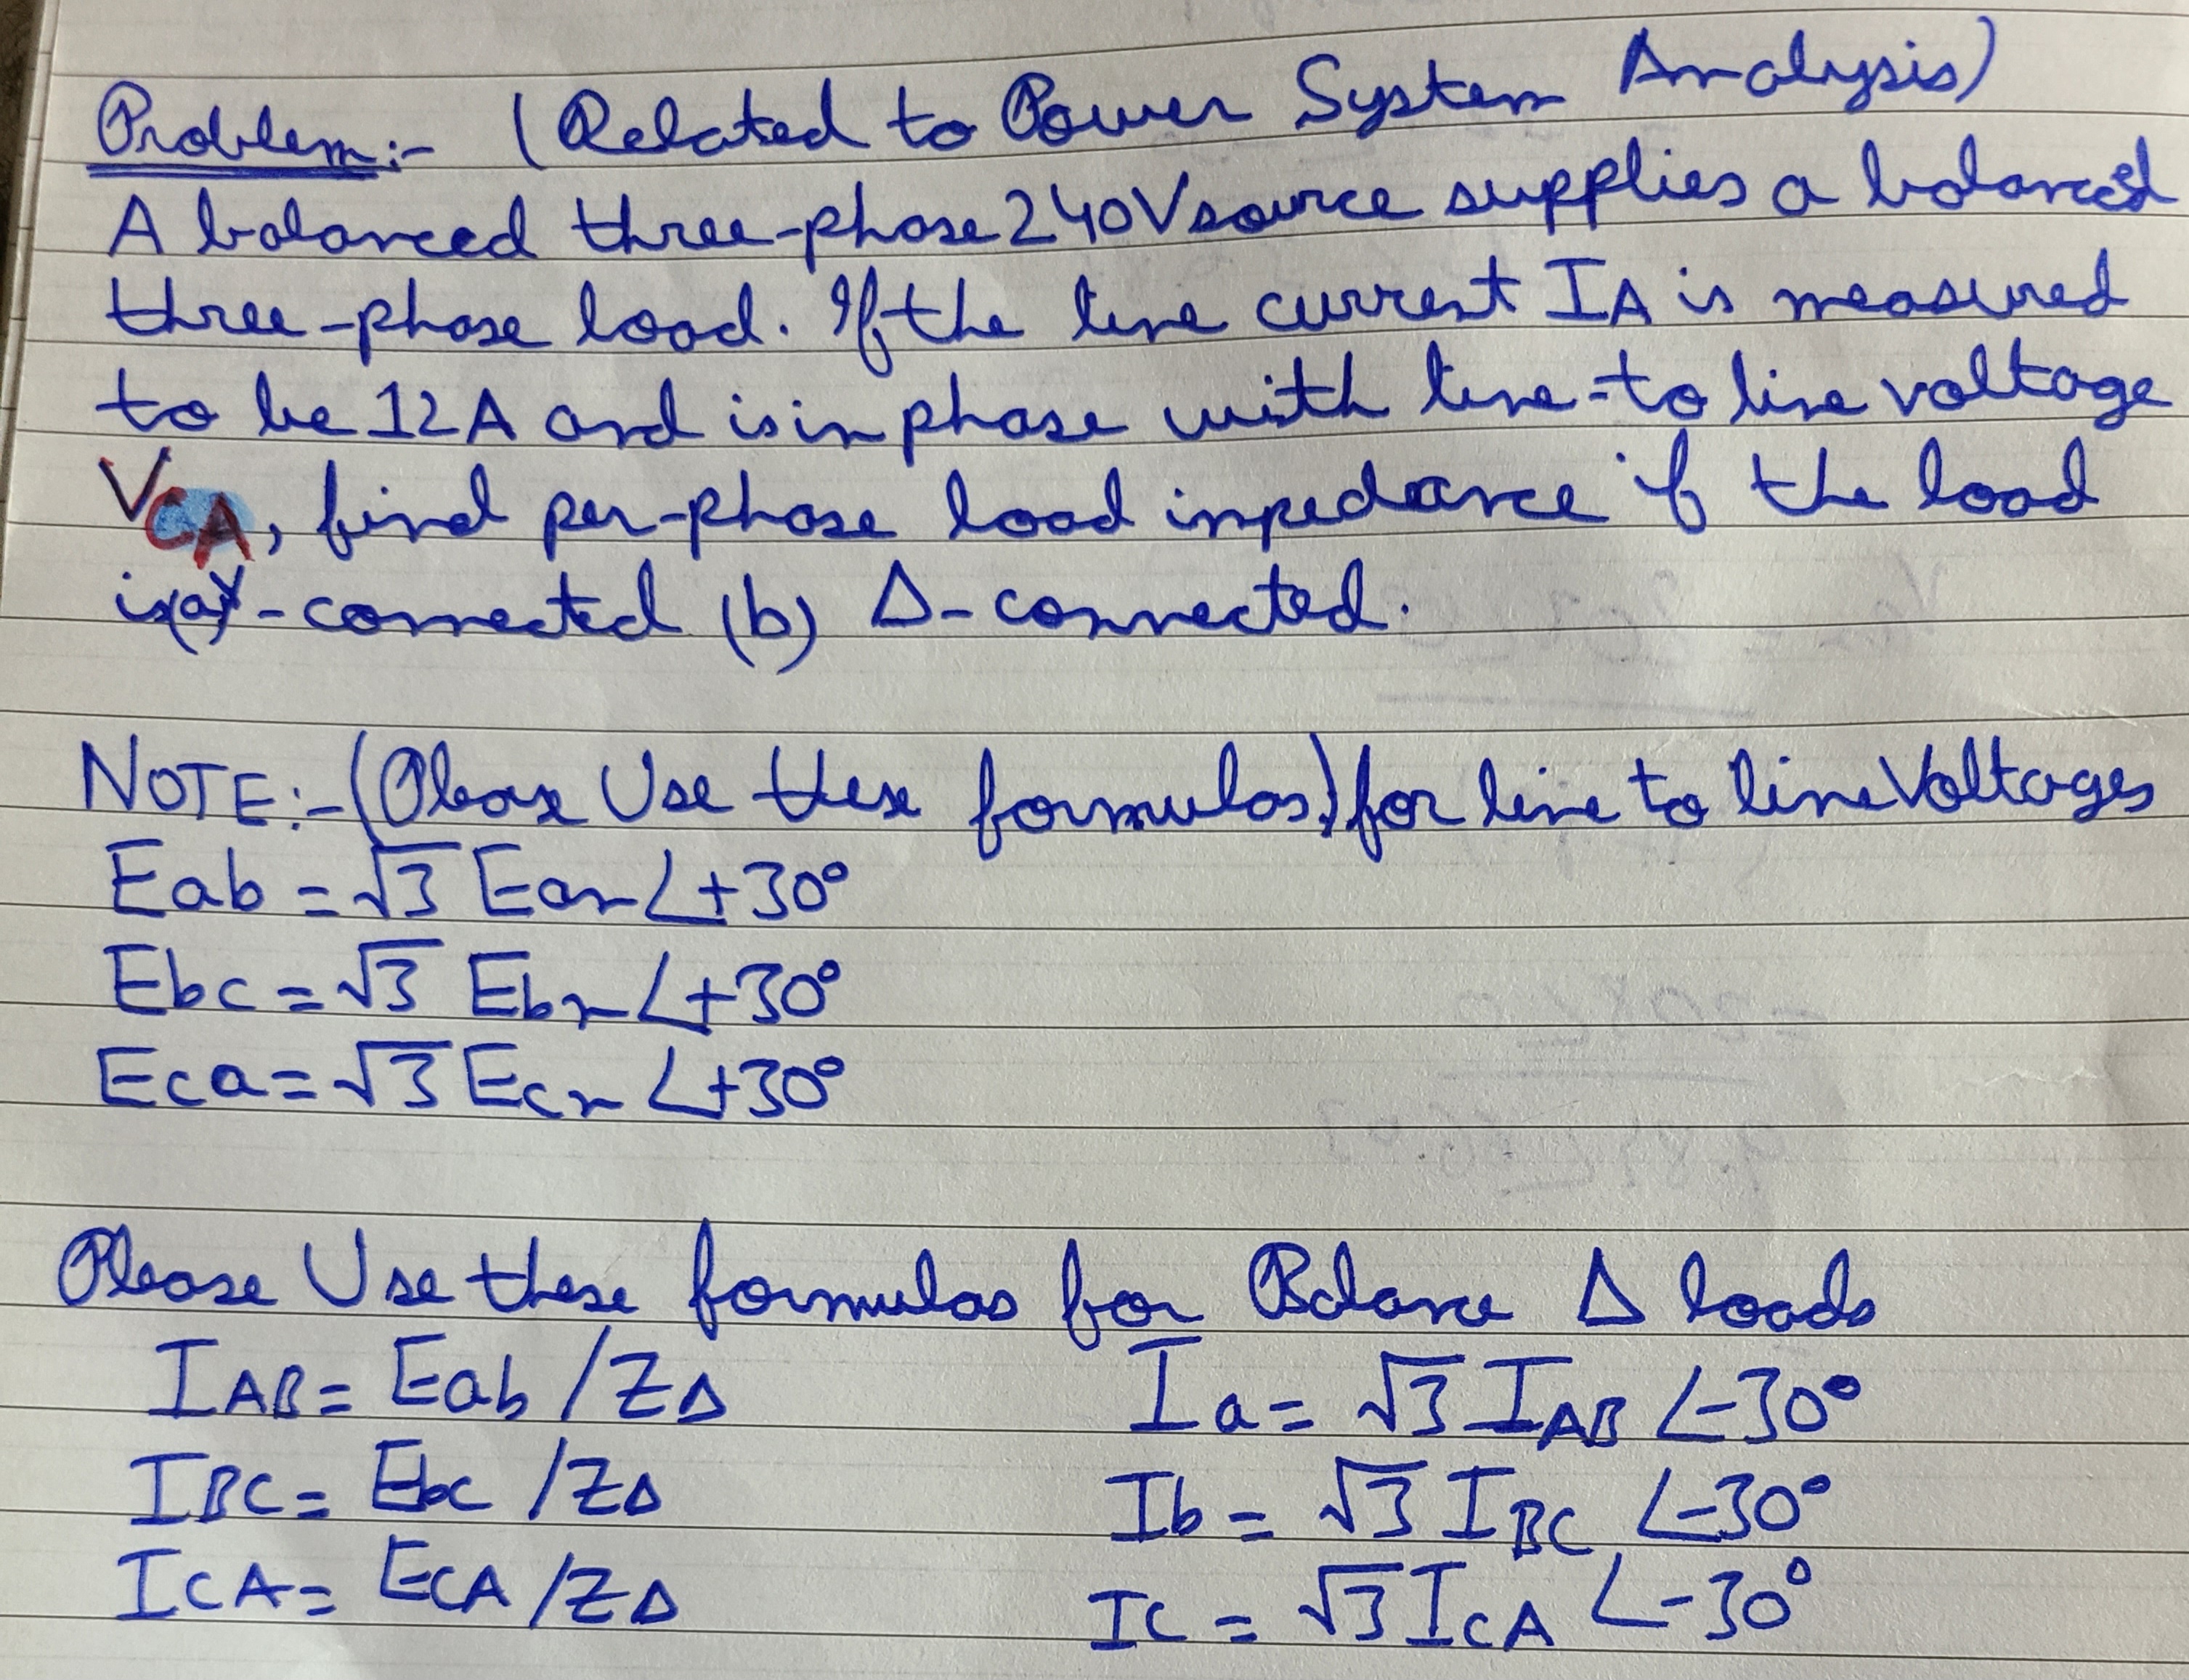 Problem:- (Related to Power System Analysis)
A balanced three-phase 240V source supplies a balanced
three-phase load. If the line current IA is measured
to be 12A and is in phase with line-to line voltage
VCA, find per-phase load impedance if the load
is (a) Y-connected (b) Δ-connected.
NOTE:- (Please Use these formulas) for line to line Voltages
Eab = √3 Ean ∠+30°
Ebc = √3 Ebn ∠+30°
Eca = √3 Ecn ∠+30°
Please Use these formulas for Balance Δ loads
IAB = Eab / ZΔ Ia = √3 IAB ∠-30°
IBC = Ebc / ZΔ Ib = √3 IBC ∠-30°
ICA = ECA / ZΔ IC = √3 ICA ∠-30°